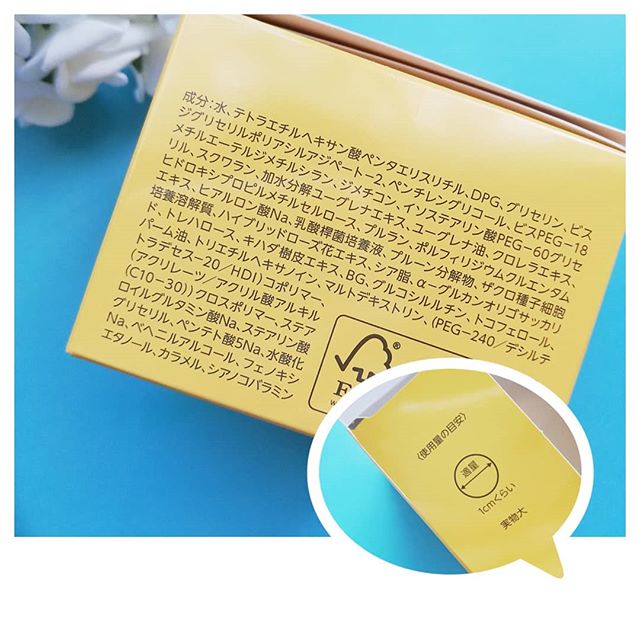 成分：水、テトラエチルヘキサン酸ペンタエリスリチル、DPG、グリセリン、ビス
ジグリセリルポリアシルアジペート-2、ペンチレングリコール、ビスPEG-18
メチルエーテルジメチルシラン、ジメチコン、イソステアリン酸PEG-60グリセ
リル、スクワラン、加水分解ユーグレナエキス、ユーグレナ油、クロレラエキス、
ヒドロキシプロピルメチルセルロース、プルラン、ポルフィリジウムクルエンタム
エキス、ヒアルロン酸Na、乳酸桿菌培養液、プルーン分解物、ザクロ種子細胞
培養溶解質、ハイブリッドローズ花エキス、シア脂、α-グルカンオリゴサッカリ
ド、トレハロース、キハダ樹皮エキス、BG、グルコシルルチン、トコフェロール、
パーム油、トリエチルヘキサノイン、マルトデキストリン、(PEG-240/デシルテ
トラデセス-20/HDI)コポリマー、
(アクリレーツ/アクリル酸アルキル
(C10-30))クロスポリマー、ステア
ロイルグルタミン酸Na、ステアリン酸
グリセリル、ペンテト酸5Na、水酸化
Na、ベヘニルアルコール、フェノキシ
エタノール、カラメル、シアノコバラミン
〈使用量の目安〉
適量
1cmくらい
実物大